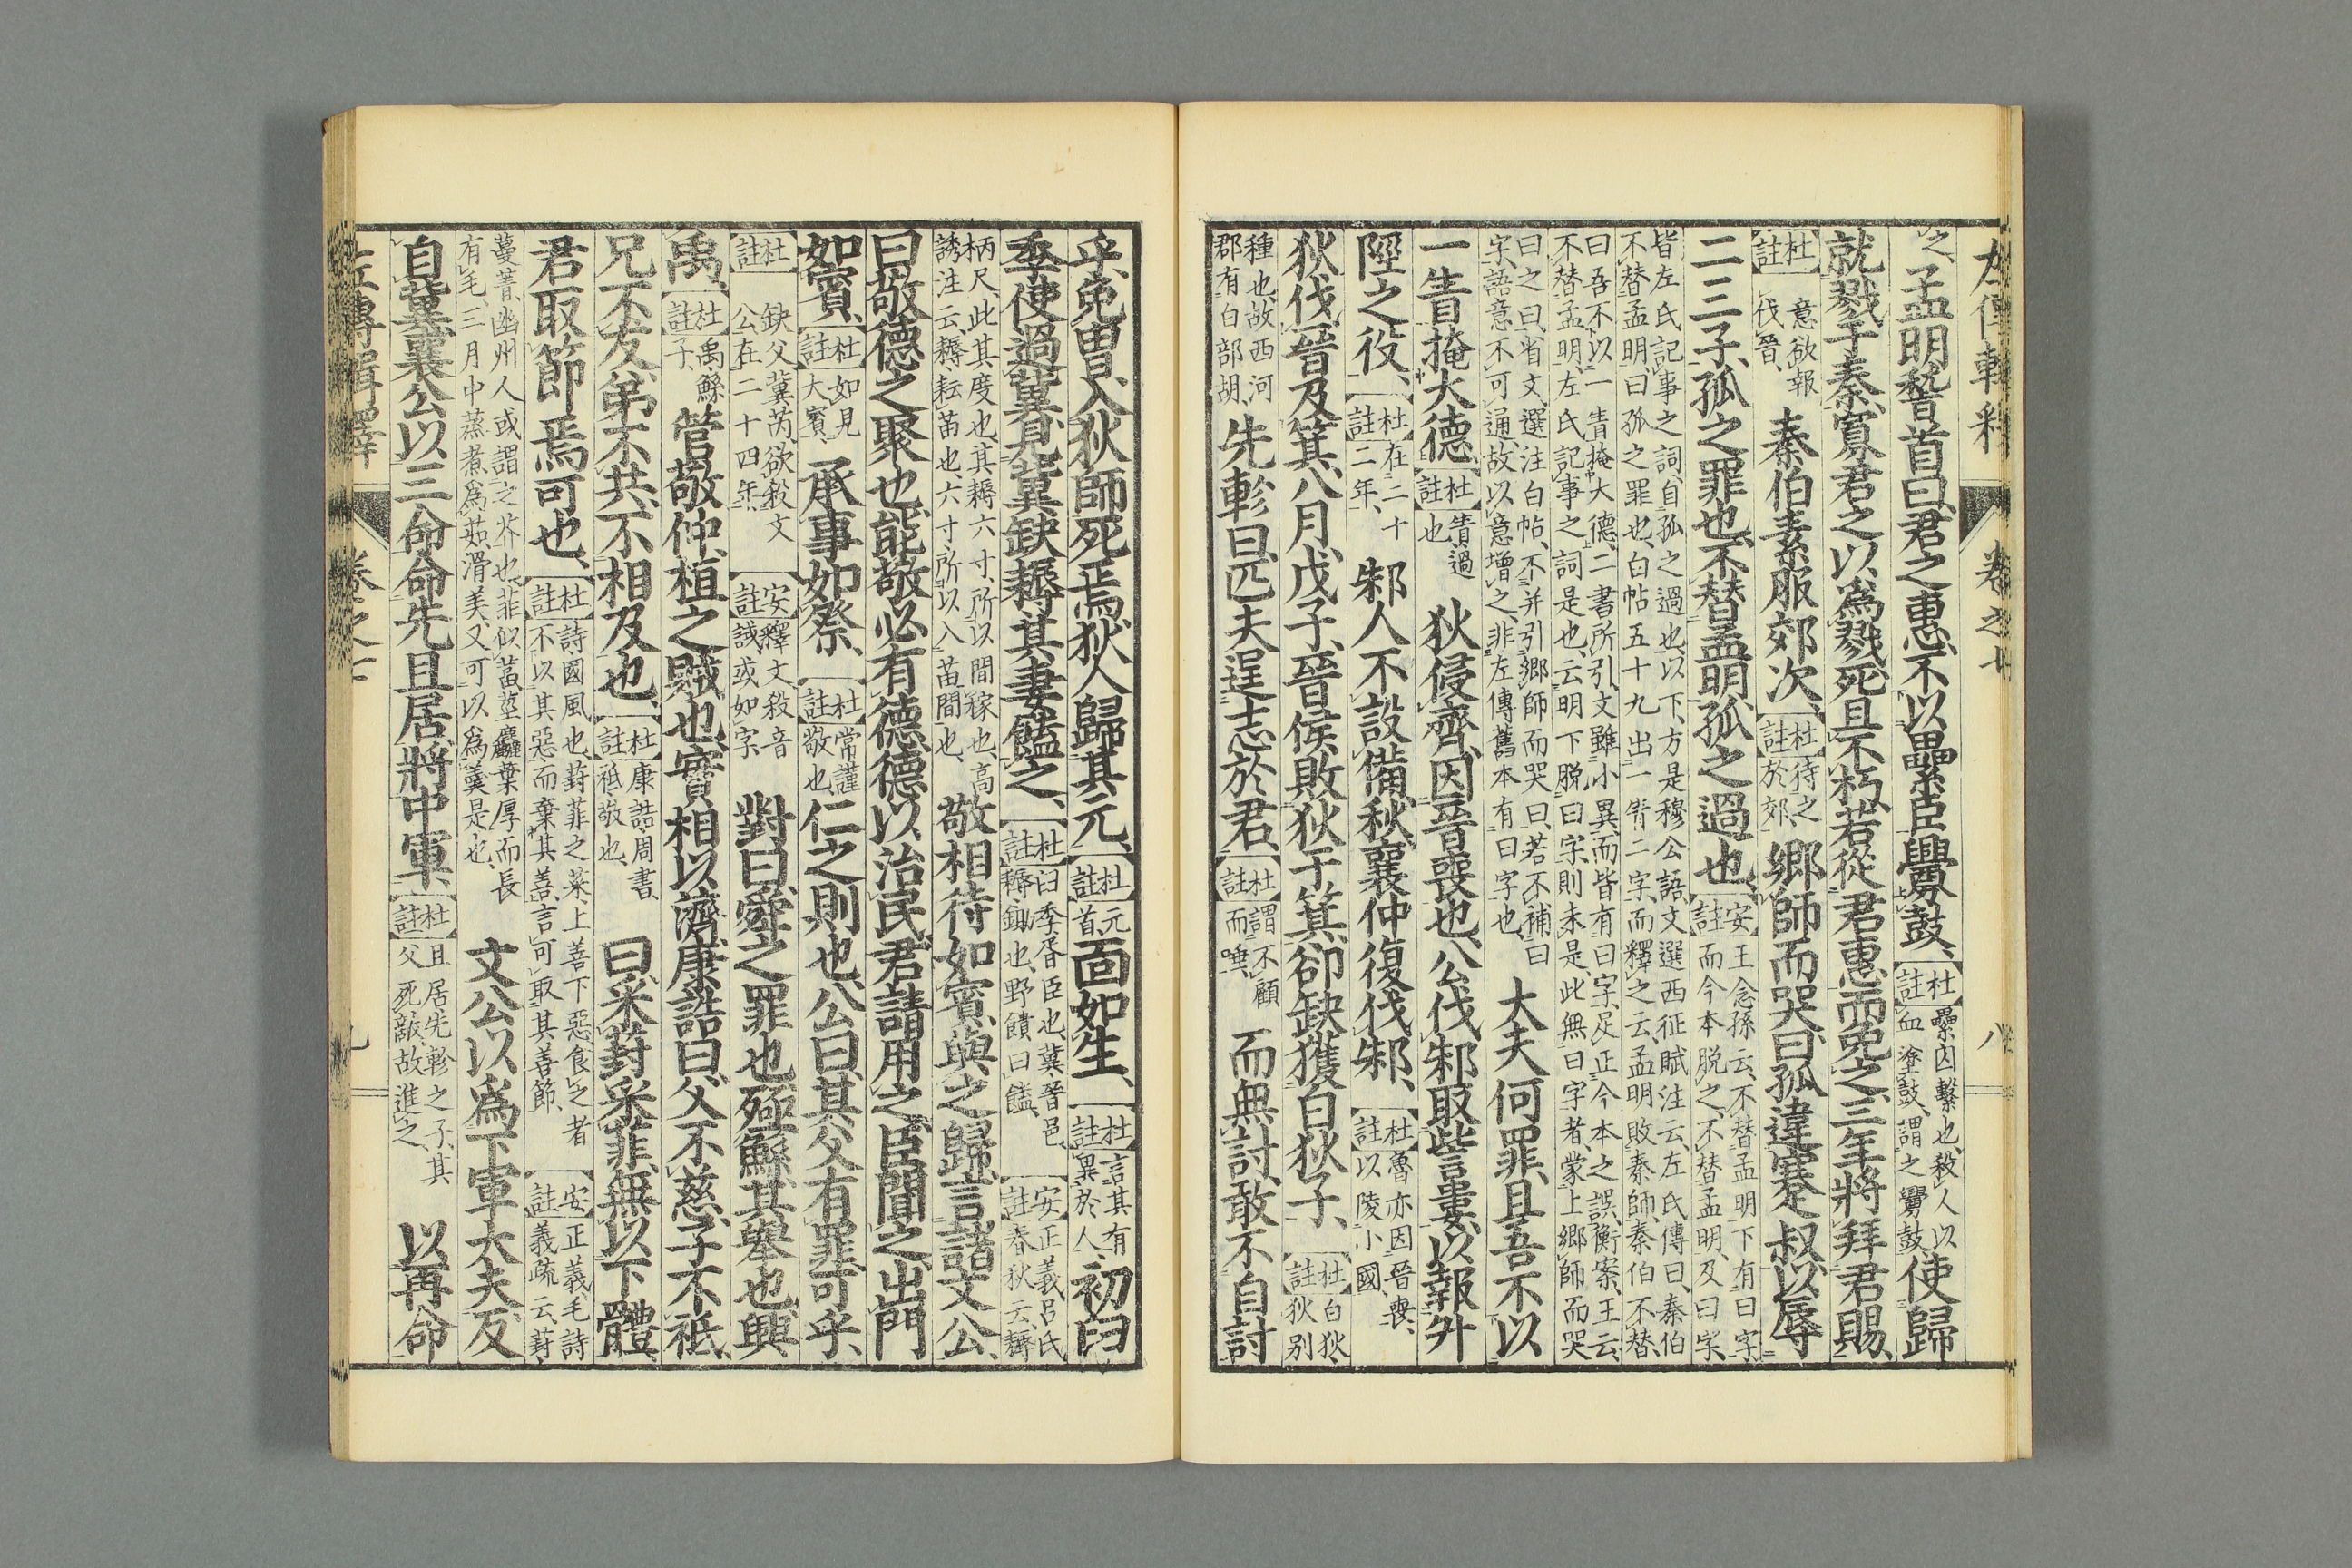 左傳輯釋 卷之七 八
之孟明稽首曰君之惠不以纍臣釁鼓【杜註】纍囚繫也殺人以血塗鼓謂之釁鼓使歸
就戮于秦寡君之以爲戮死且不朽若從君惠而免之三年將拜君賜
【杜註】意欲報伐晉秦伯素服郊次【杜註】待之於郊鄉師而哭曰孤違蹇叔以辱
二三子孤之罪也不替孟明孤之過也【安註】王念孫云不替孟明下有曰字而今本脱之不替孟明及曰字
皆左氏記事之詞自孤之過也以下方是穆公語文選西征賦注云左氏傳曰秦伯不替孟明曰孤之罪也白帖五十九出一眚二字而釋之云孟明敗秦師秦伯不替
曰吾不以一眚掩大德二書所引文雖小異而皆有曰字足正今本之誤衡案王云不替孟明左氏記事之詞是也云明下脱曰字則未是此無曰字者蒙上鄉師而哭
曰之曰省文選注白帖不并引鄉師而哭曰若不補曰字語意不可通故以意增之非左傳舊本有曰字也大夫何罪且吾不以
一眚掩大德【杜註】眚過也狄侵齊因晉喪也公伐邾取訾婁以報升
陘之役【杜註】在二十二年邾人不設備秋襄仲復伐邾【杜註】魯亦因晉喪以陵小國
狄伐晉及箕八月戊子晉侯敗狄于箕郤缺獲白狄子【杜註】白狄狄别
種也故西河郡有白部胡先軫曰匹夫逞志於君【杜註】謂不顧而唾而無討敢不自討
乎免冑入狄師死焉狄人歸其元【杜註】元首面如生【杜註】言其有異於人初臼
季使過冀見冀缺耨其妻饁之【杜註】臼季胥臣也冀晉邑耨鋤也野饋曰饁【安註】正義呂氏春秋云耨
柄尺此其度也其耨六寸所以間稼也高誘注云耨耘苗也六寸所以入苗間也敬相待如賓與之歸言諸文公
曰敬德之聚也能敬必有德德以治民君請用之臣聞之出門
如賓【杜註】如見大賓承事如祭【杜註】常謹敬也仁之則也公曰其父有罪可乎
【杜註】缺父冀芮欲殺文公在二十四年【安註】釋文殺音試或如字對曰舜之罪也殛鯀其舉也興
禹【杜註】禹鯀子管敬仲桓之賊也實相以濟康誥曰父不慈子不祗
兄不友弟不共不相及也【杜註】康誥周書祗敬也曰采葑采菲無以下體
君取節焉可也【杜註】詩國風也葑菲之菜上善下惡食之者不以其惡而棄其善言可取其善節【安註】正義毛詩義疏云葑
蔓菁幽州人或謂之芥也菲似葍莖麤葉厚而長有毛三月中蒸煮爲茹滑美又可以爲羹是也文公以爲下軍大夫反
自箕襄公以三命命先且居將中軍【杜註】且居先軫之子其父死敵故進之以再命
左傳輯釋 卷之七 九